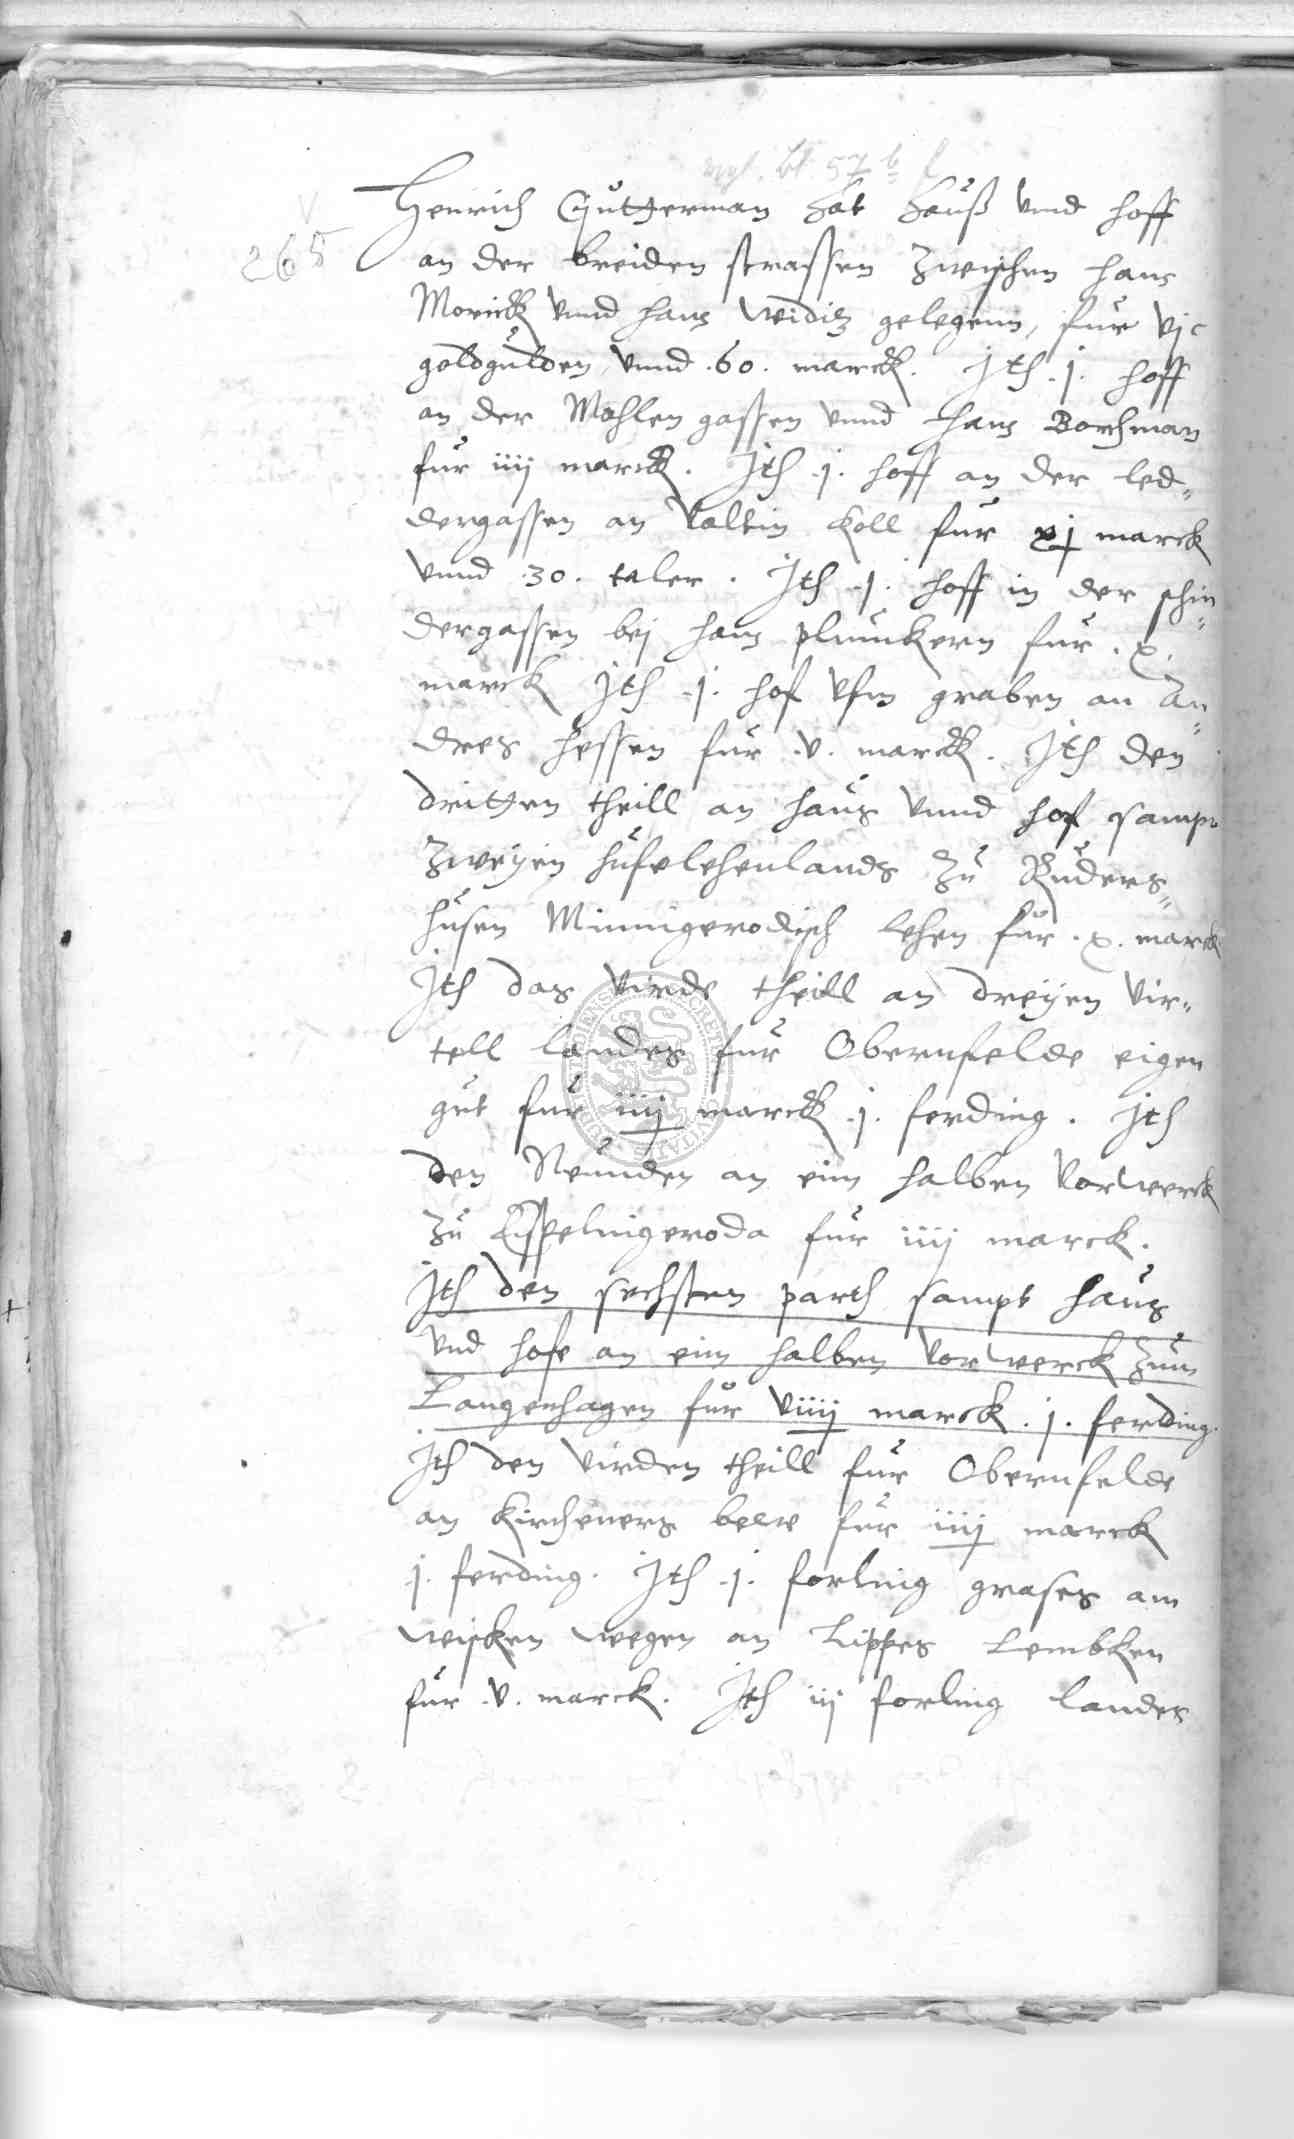 265
Henrich Gutterman hat hauß vnnd hoff
an der breiden strassen zwischen hans
Morick vnnd hans Weidig gelegenn, fur vjc
goldgulden, vnnd .60. marck. Jth .j. hoff
an der Mohlen gassen vnnd hans Borchman
fur iiij marck. Jth .j. hoff an der led„
dergassen an Valtin Koll fur xj marck
vnnd .30. taler. Jth .j. hoff in der schin„
dergassen bej hans plunckern fur .x.
marck Jth .j. hof vfm graben an An„
dres hessen fur .v. marck. Jth den
dritten theill an haus vnnd hof sampt
zweyen hufelehenlands zu Ruders„
husen Minnigerodisch lehen fur .x. marck
Jth das virde theill an dreyen vir„
tell landes fur Obernfelde eigen
gut fur iiij marck .j. ferding. Jth
den Neunden an eim halben Vorwerck
zu Esplingeroda fur iiij marck.
Jth den sechsten parth sampt haus
vnd hofe an eim halben Vorwerck zum
Langenhagen fur viiij marck .j. ferding.
Jth den virden theill fur Obernfelde
an Kircheners belw fur iiij marck
.j. ferding. Jth .j. forling grases am
Wisken wegen an Lippes Lembken
fur .v. marck. Jth iij forling landes